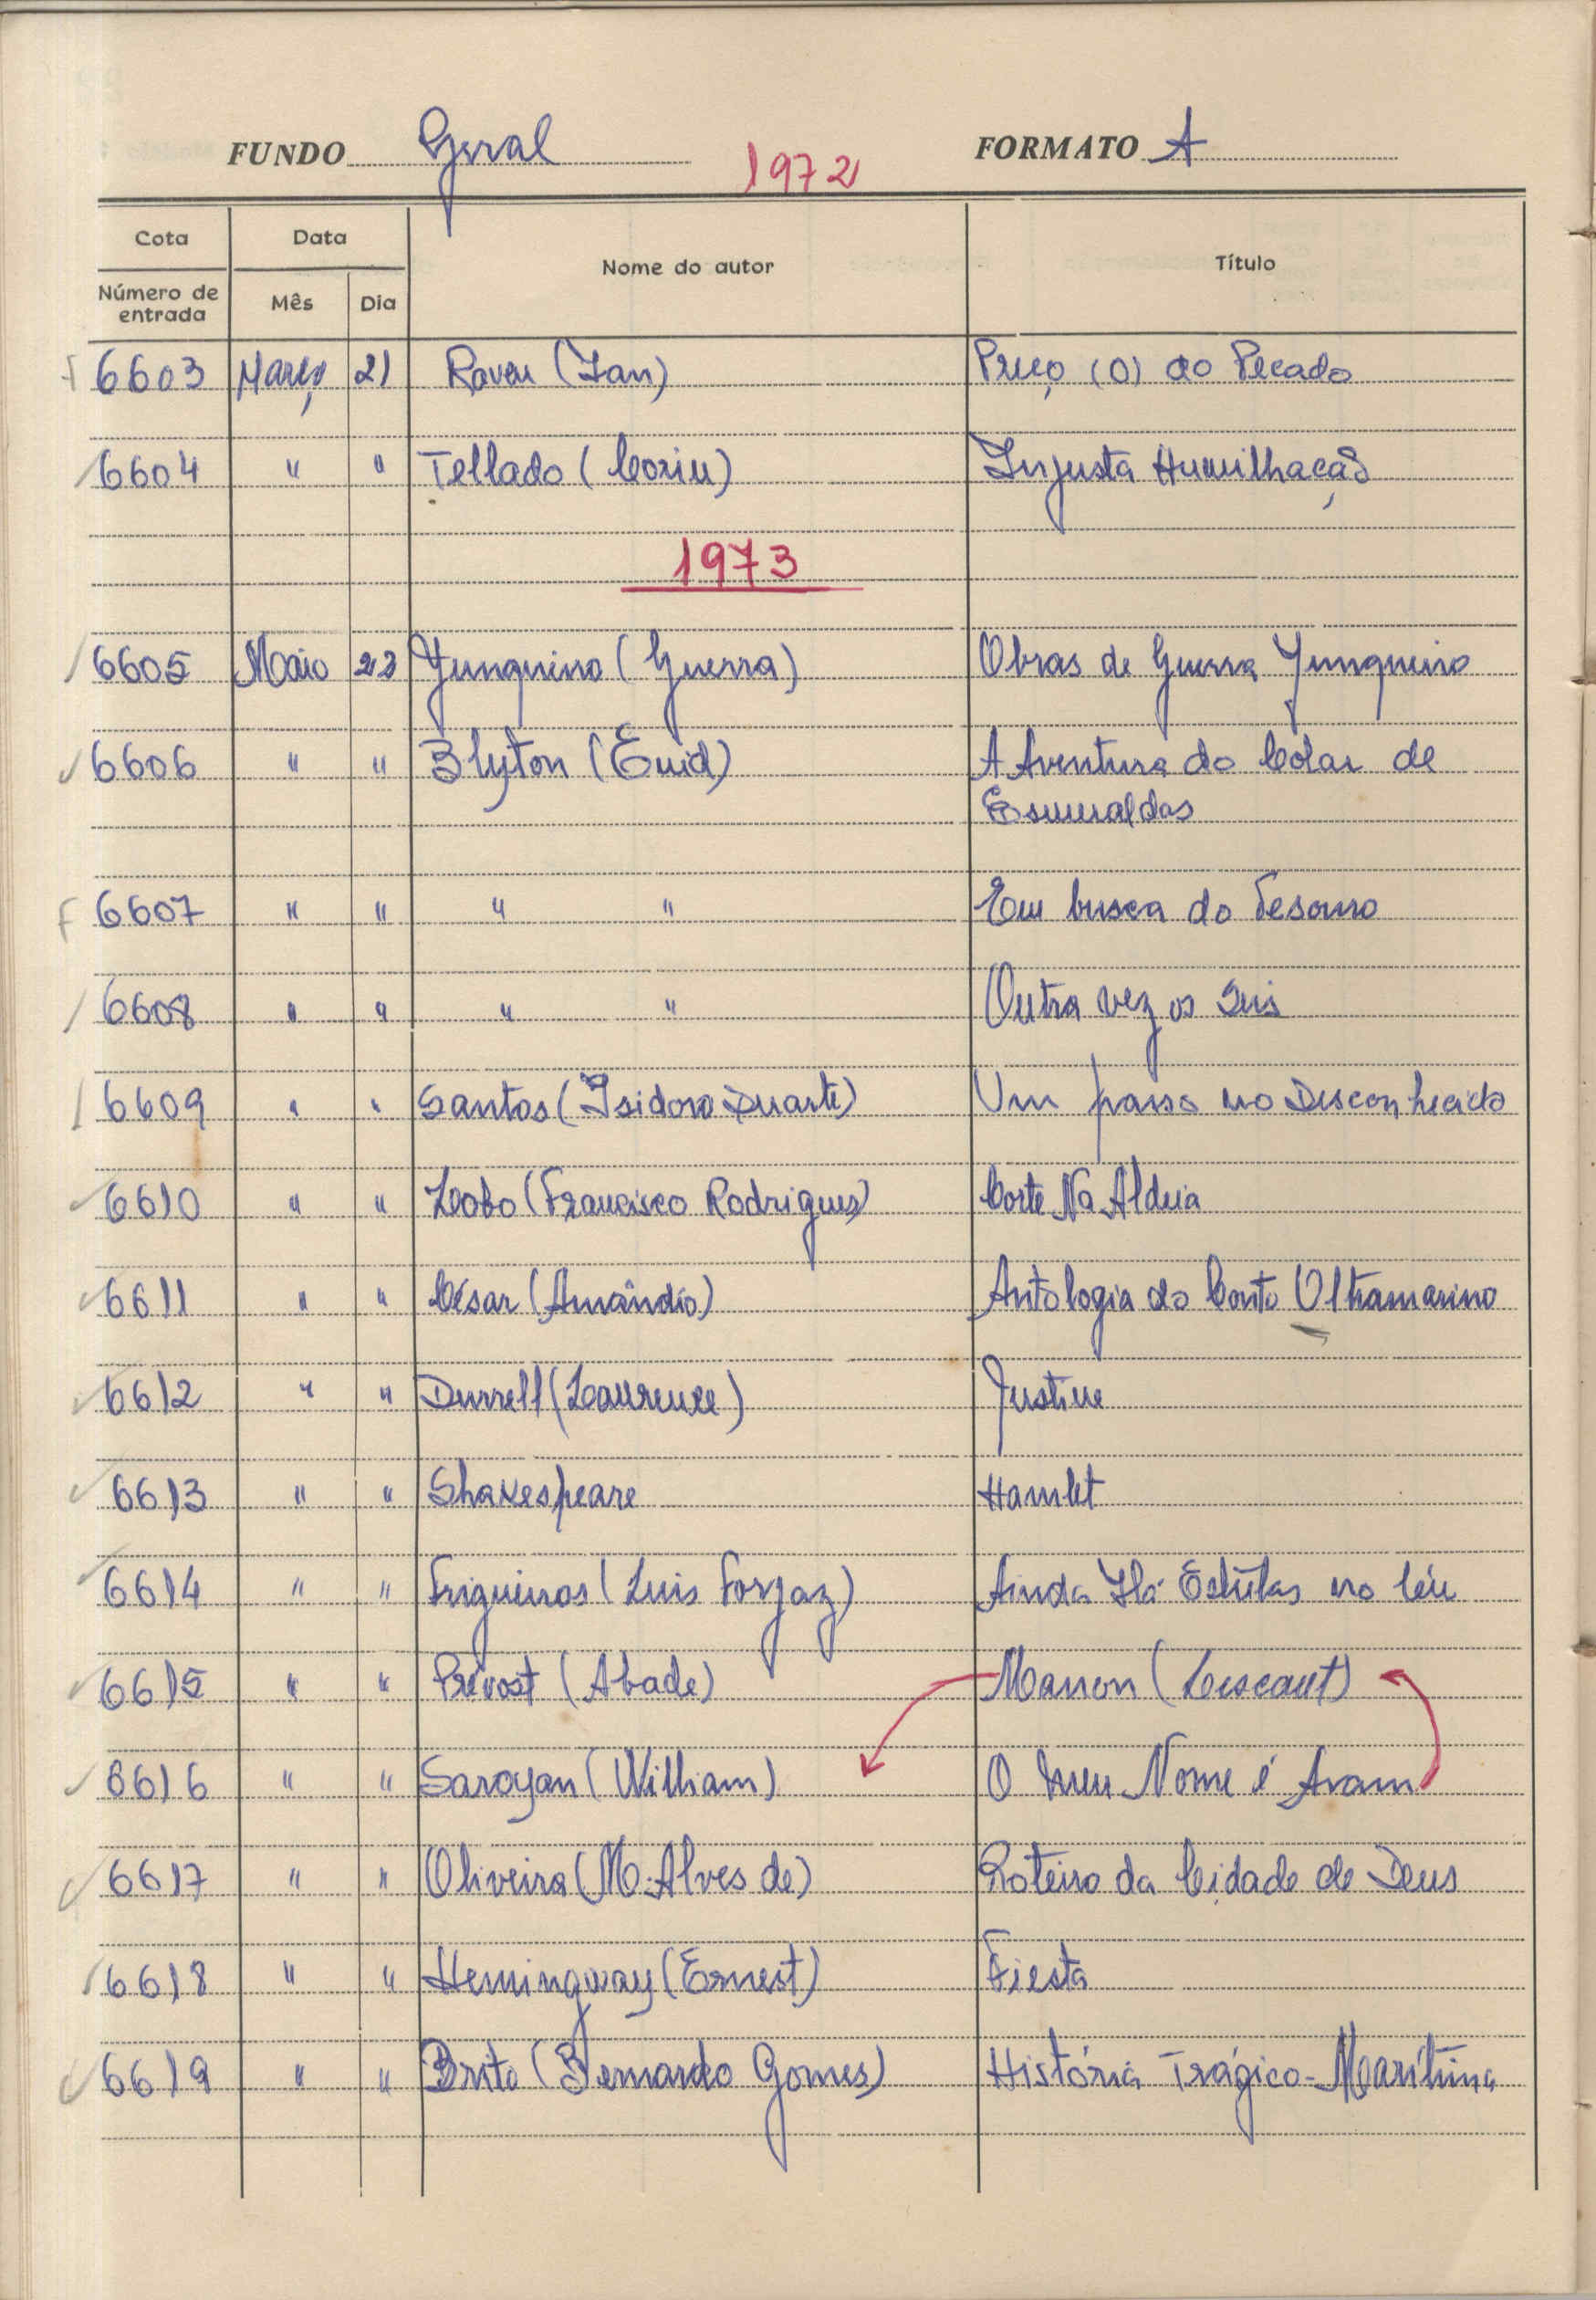 FUNDO Geral 1972 FORMATO A
Cota Data Nome do autor Título
Número de entrada Mês Dia
f 6603 Março 21 Raven (Ian) Preço (O) do Pecado
6604 " " Tellado (Corin) Injusta Humilhação
1973
6605 Maio 22 Junqueiro (Guerra) Obras de Guerra Junqueiro
6606 " " Blyton (Enid) A Aventura do Colar de
Esmeraldas
f 6607 " " " " Em busca do Tesouro
6608 " " " " Outra vez os Seis
6609 " " Santos (Isidoro Duarte) Um passo no Desconhecido
6610 " " Lobo (Francisco Rodrigues) Corte Na Aldeia
6611 " " César (Amândio) Antologia do Conto Ultramarino
6612 " " Durrell (Laurence) Justine
6613 " " Shakespeare Hamlet
6614 " " Trigueiros (Luis Forjaz) Ainda Há Estrelas no Céu
6615 " " Prévost (Abade) Manon (Lescaut)
6616 " " Saroyan (William) O meu Nome é Aram
6617 " " Oliveira (M. Alves de) Roteiro da Cidade de Deus
6618 " " Hemingway (Ernest) Fiesta
6619 " " Brito (Bernardo Gomes) História Trágico-Marítima